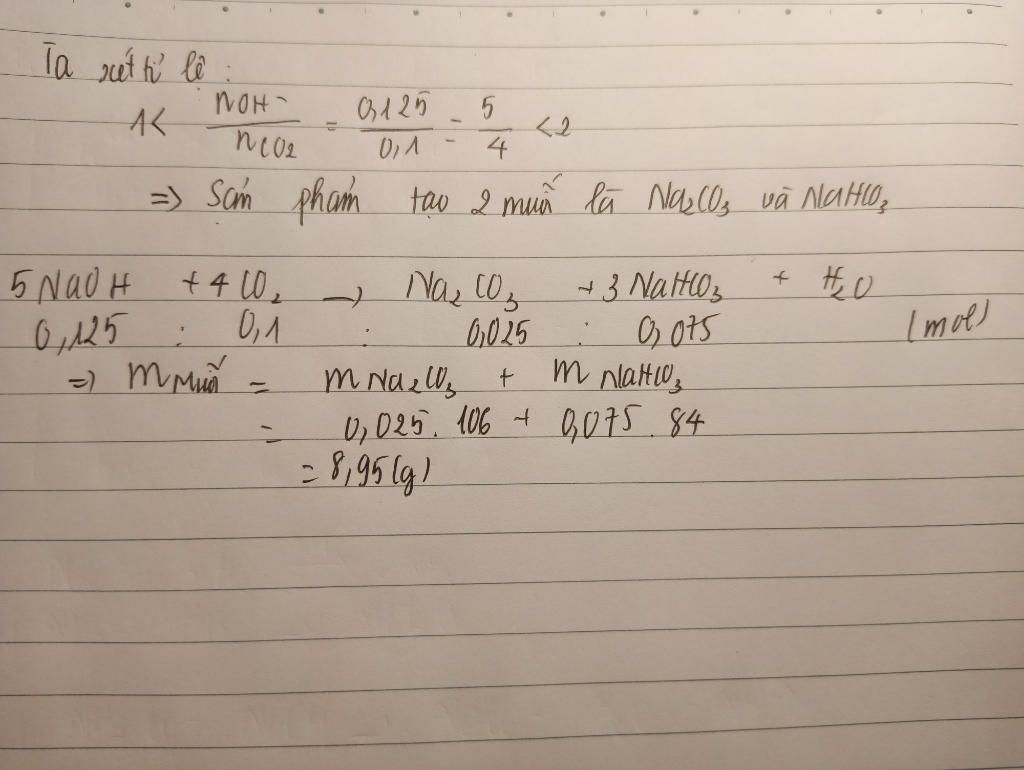 Ta xét tỉ lệ :
1 < nOH⁻/nCO₂ = 0,125/0,1 = 5/4 < 2
=> Sản phẩm tạo 2 muối là Na₂CO₃ và NaHCO₃
5 NaOH + 4 CO₂ → Na₂CO₃ + 3 NaHCO₃ + H₂O
0,125 : 0,1 : 0,025 : 0,075 (mol)
=> m Muối = m Na₂CO₃ + m NaHCO₃
= 0,025 . 106 + 0,075 . 84
= 8,95 (g)